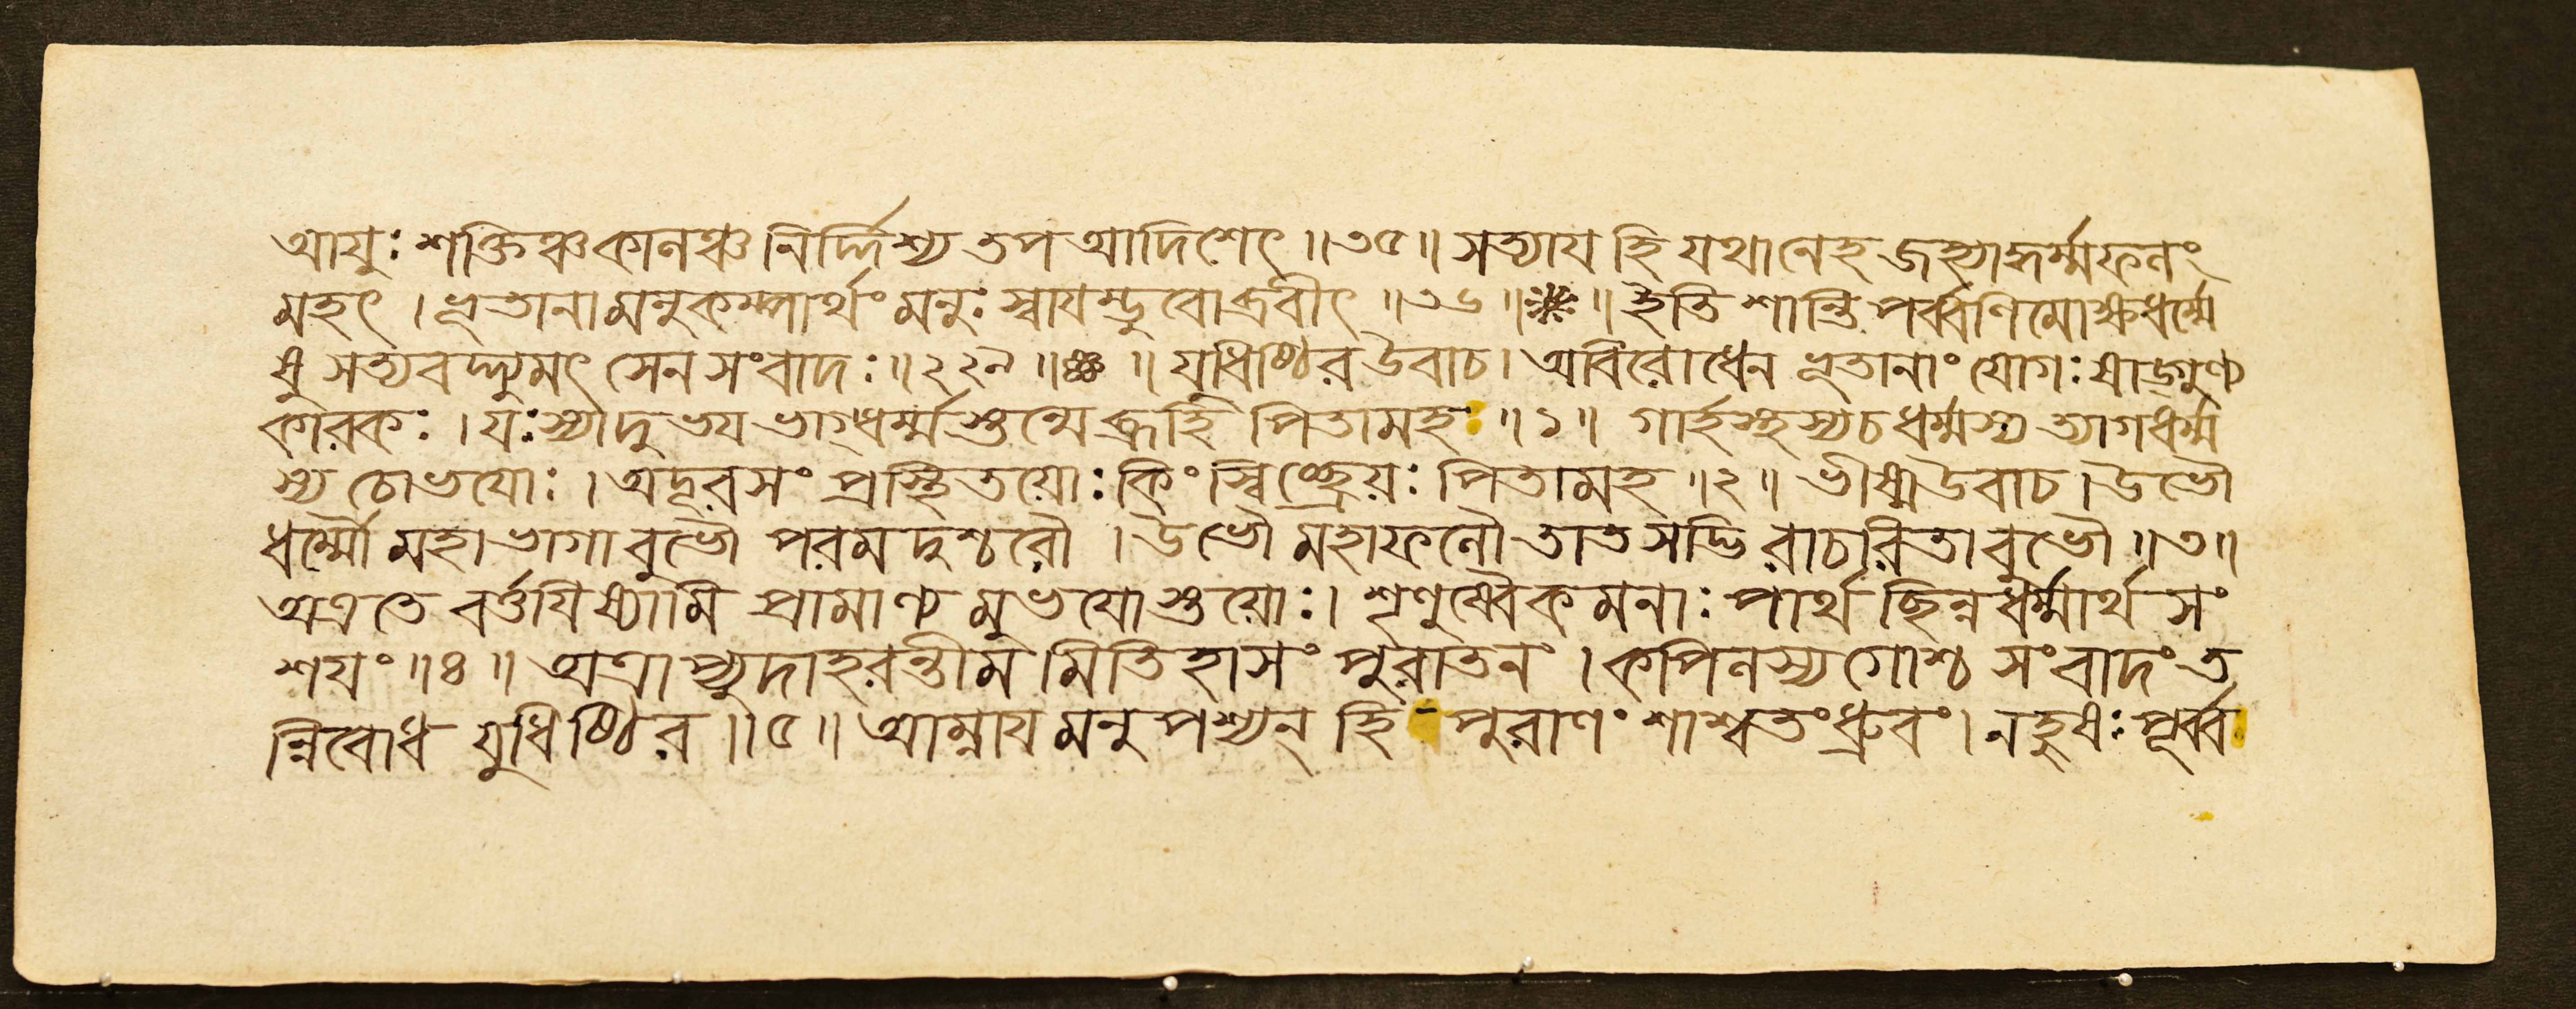 আয়ুঃ শক্তিঞ্চ কালঞ্চ নির্দ্দিশ্য তপ আদিশেৎ ॥৩৫॥ সত্যায় হি যথা নেহ জহ্যাদ্ধর্ম্মফলং
মহৎ । ভূতানামনুকম্পার্থং মনুঃ স্বায়ম্ভুবোব্রবীৎ ॥৩৬॥❋॥ ইতি শান্তিপর্ব্বণি মোক্ষধর্ম্মে
ষু সত্যবদ্দ্যুমৎসেনসংবাদঃ ॥২২৯॥❋॥ যুধিষ্ঠির উবাচ । অবিরোধেন ভূতানাং যোগঃ ষাড্গুণ্য
কারকঃ । যঃ স্যাদুভয়ভাগ্ধর্ম্মস্তন্মে ব্রূহি পিতামহঃ ॥১॥ গার্হস্থস্য চ ধর্ম্মস্য ত্যাগধর্ম্ম
স্য চোভয়োঃ । অদূরসংপ্রস্থিতয়োঃ কিংস্বিচ্ছ্রেয়ঃ পিতামহ ॥২॥ ভীষ্ম উবাচ । উভৌ
ধর্ম্মৌ মহাভাগাবুভৌ পরমদুশ্চরৌ । উভৌ মহাফলৌ তাত সদ্ভিরাচরিতাবুভৌ ॥৩॥
অত্র তে বর্ত্তয়িষ্যামি প্রামাণ্যমুভয়োস্তয়োঃ । শৃণুষ্বৈকমনাঃ পার্থ ছিন্নধর্ম্মার্থসং
শয়ং ॥৪॥ অত্রাপ্যুদাহরন্তীমমিতিহাসং পুরাতনং । কপিলস্য গোশ্চ সংবাদং ত
ন্নিবোধ যুধিষ্ঠির ॥৫॥ আম্নায়মনুপশ্যন্ হি পুরাণং শাশ্বতং ধ্রুবং । নহুষঃ পূর্ব্ব